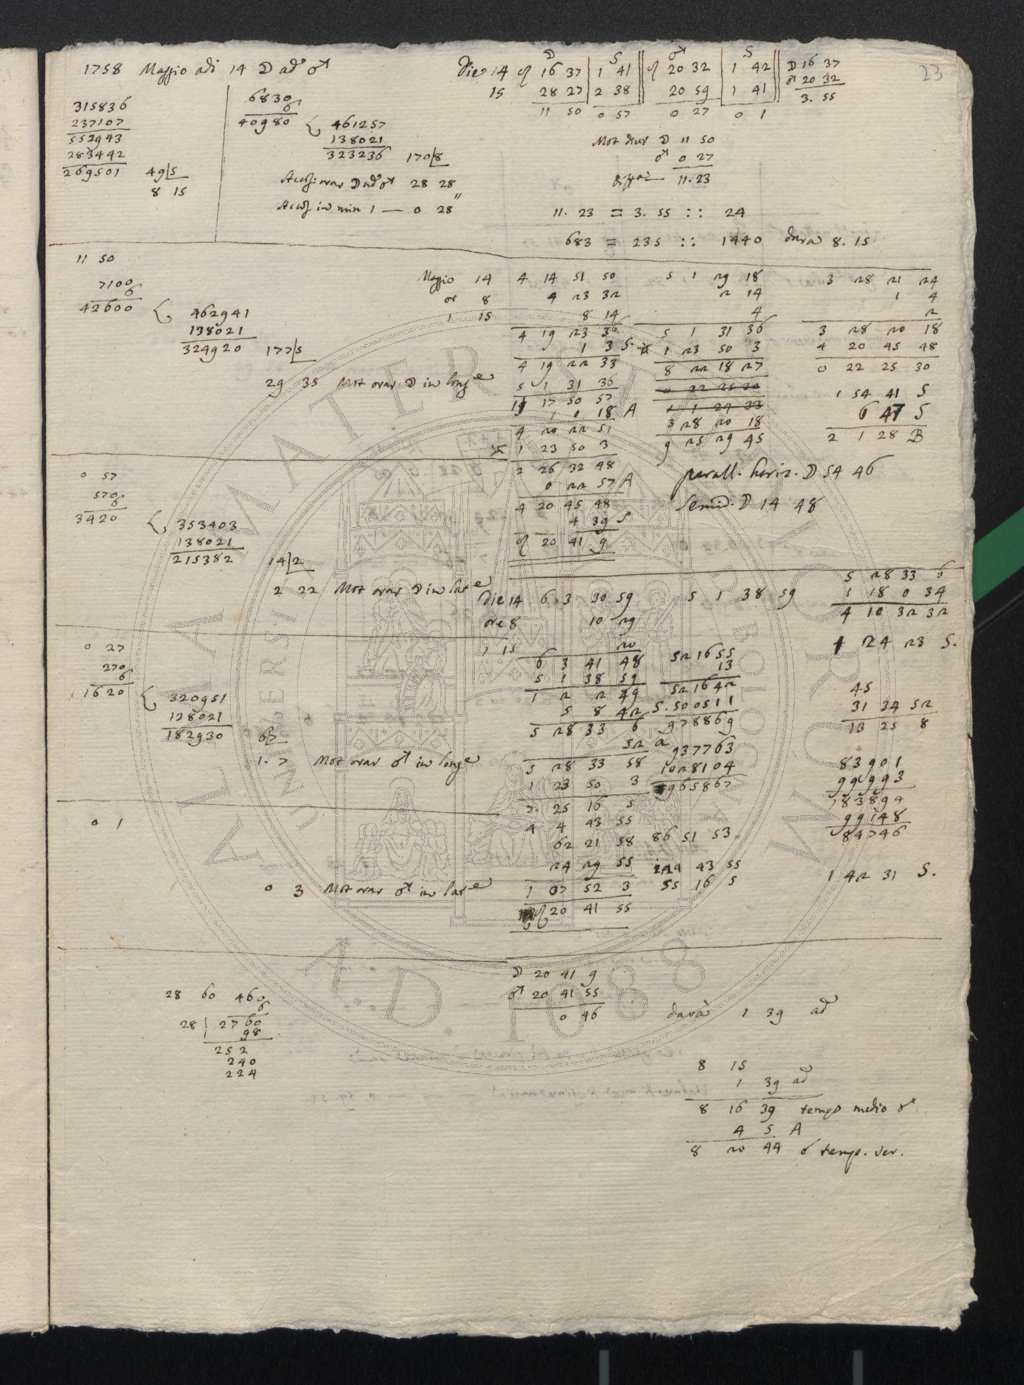 23
1758 Maggio adi 14 ☽ ad ♂
315836
237107
552943
283442
269501 49|5
8 15
6830
6
40980
461257
138021
323236 170|8
Accost orar ☽ ad ♂ 28 28
Accost in min 1 — 0 28"
Die 14 ♌ 16 37 | 1 41 || ♌ 20 32 | 1 42 || ☽ 16 37
15 28 27 | 2 38 || 20 59 | 1 41 || ♂ 20 32
11 50 0 57 0 27 0 1 3. 55
Mot diur ☽ 11 50
♂ 0 27
11. 23
11. 23 = 3. 55 :: 24
683 = 235 :: 1440 dura 8. 15
11 50
7100
6
42600
462941
138021
324920 177|5
29 35 Mot orar ☽ in longe
Maggio 14 4 14 51 50
or 8 4 23 32
1 15 8 14
4 19 23 36
1 3 S.
4 19 22 33
5 1 31 36
17 50 57
1 0 18 A
4 20 22 51
1 23 50 3
2 26 32 48
0 22 57 A
4 20 45 48
4 39 S
♌ 20 41 9
5 1 29 18
2 14
4
5 1 31 36
1 23 50 3
8 22 18 27
3 28 20 18
9 25 29 45
3 28 21 24
1 4
2
3 28 20 18
4 20 45 48
0 22 25 30
1 54 41 S
6 47 S
2 1 28 B
parall. horiz. ☽ 54 46
Semid. ☽ 14 48
0 57
570
6
3420
353403
138021
215382 14|2
2 22 Mot orar ☽ in late
Die 14 6 3 30 59 5 1 38 59
ore 8 10 29
1 15 20
6 3 41 48
5 1 38 59
1 2 2 49
5 8 42
5 28 33 6
52 a
5 28 33 58
1 23 50 3
25 16 5
4 4 43 55
62 21 58
24 29 55
1 07 52 3
♌ 20 41 55
52 16 55
13
52 16 42
5. 500511
978869
937763
1028104
965867
86 51 53
124 43 55
55 16 5
5 28 33 6
1 18 0 34
4 10 32 32
1 24 23 S.
45
31 34 52
13 25 8
83901
99993
183894
99148
84746
1 42 31 S.
0 27
270
6
1620
320951
138021
182930 67
1. 7 Mot orar ♂ in longe
0 1
0 3 Mot orar ♂ in late
☽ 20 41 9
♂ 20 41 55
0 46 darà 1 39 ad
28 60 460
6
28 | 2760
98
252
240
224
8 15
1 39 ad
8 16 39 tempo medio ☌
4 5 A
8 20 44 ☌ temp. ver.
ALMA MATER STUDIORUM
UNIVERSITÀ DI BOLOGNA
A.D. 1088